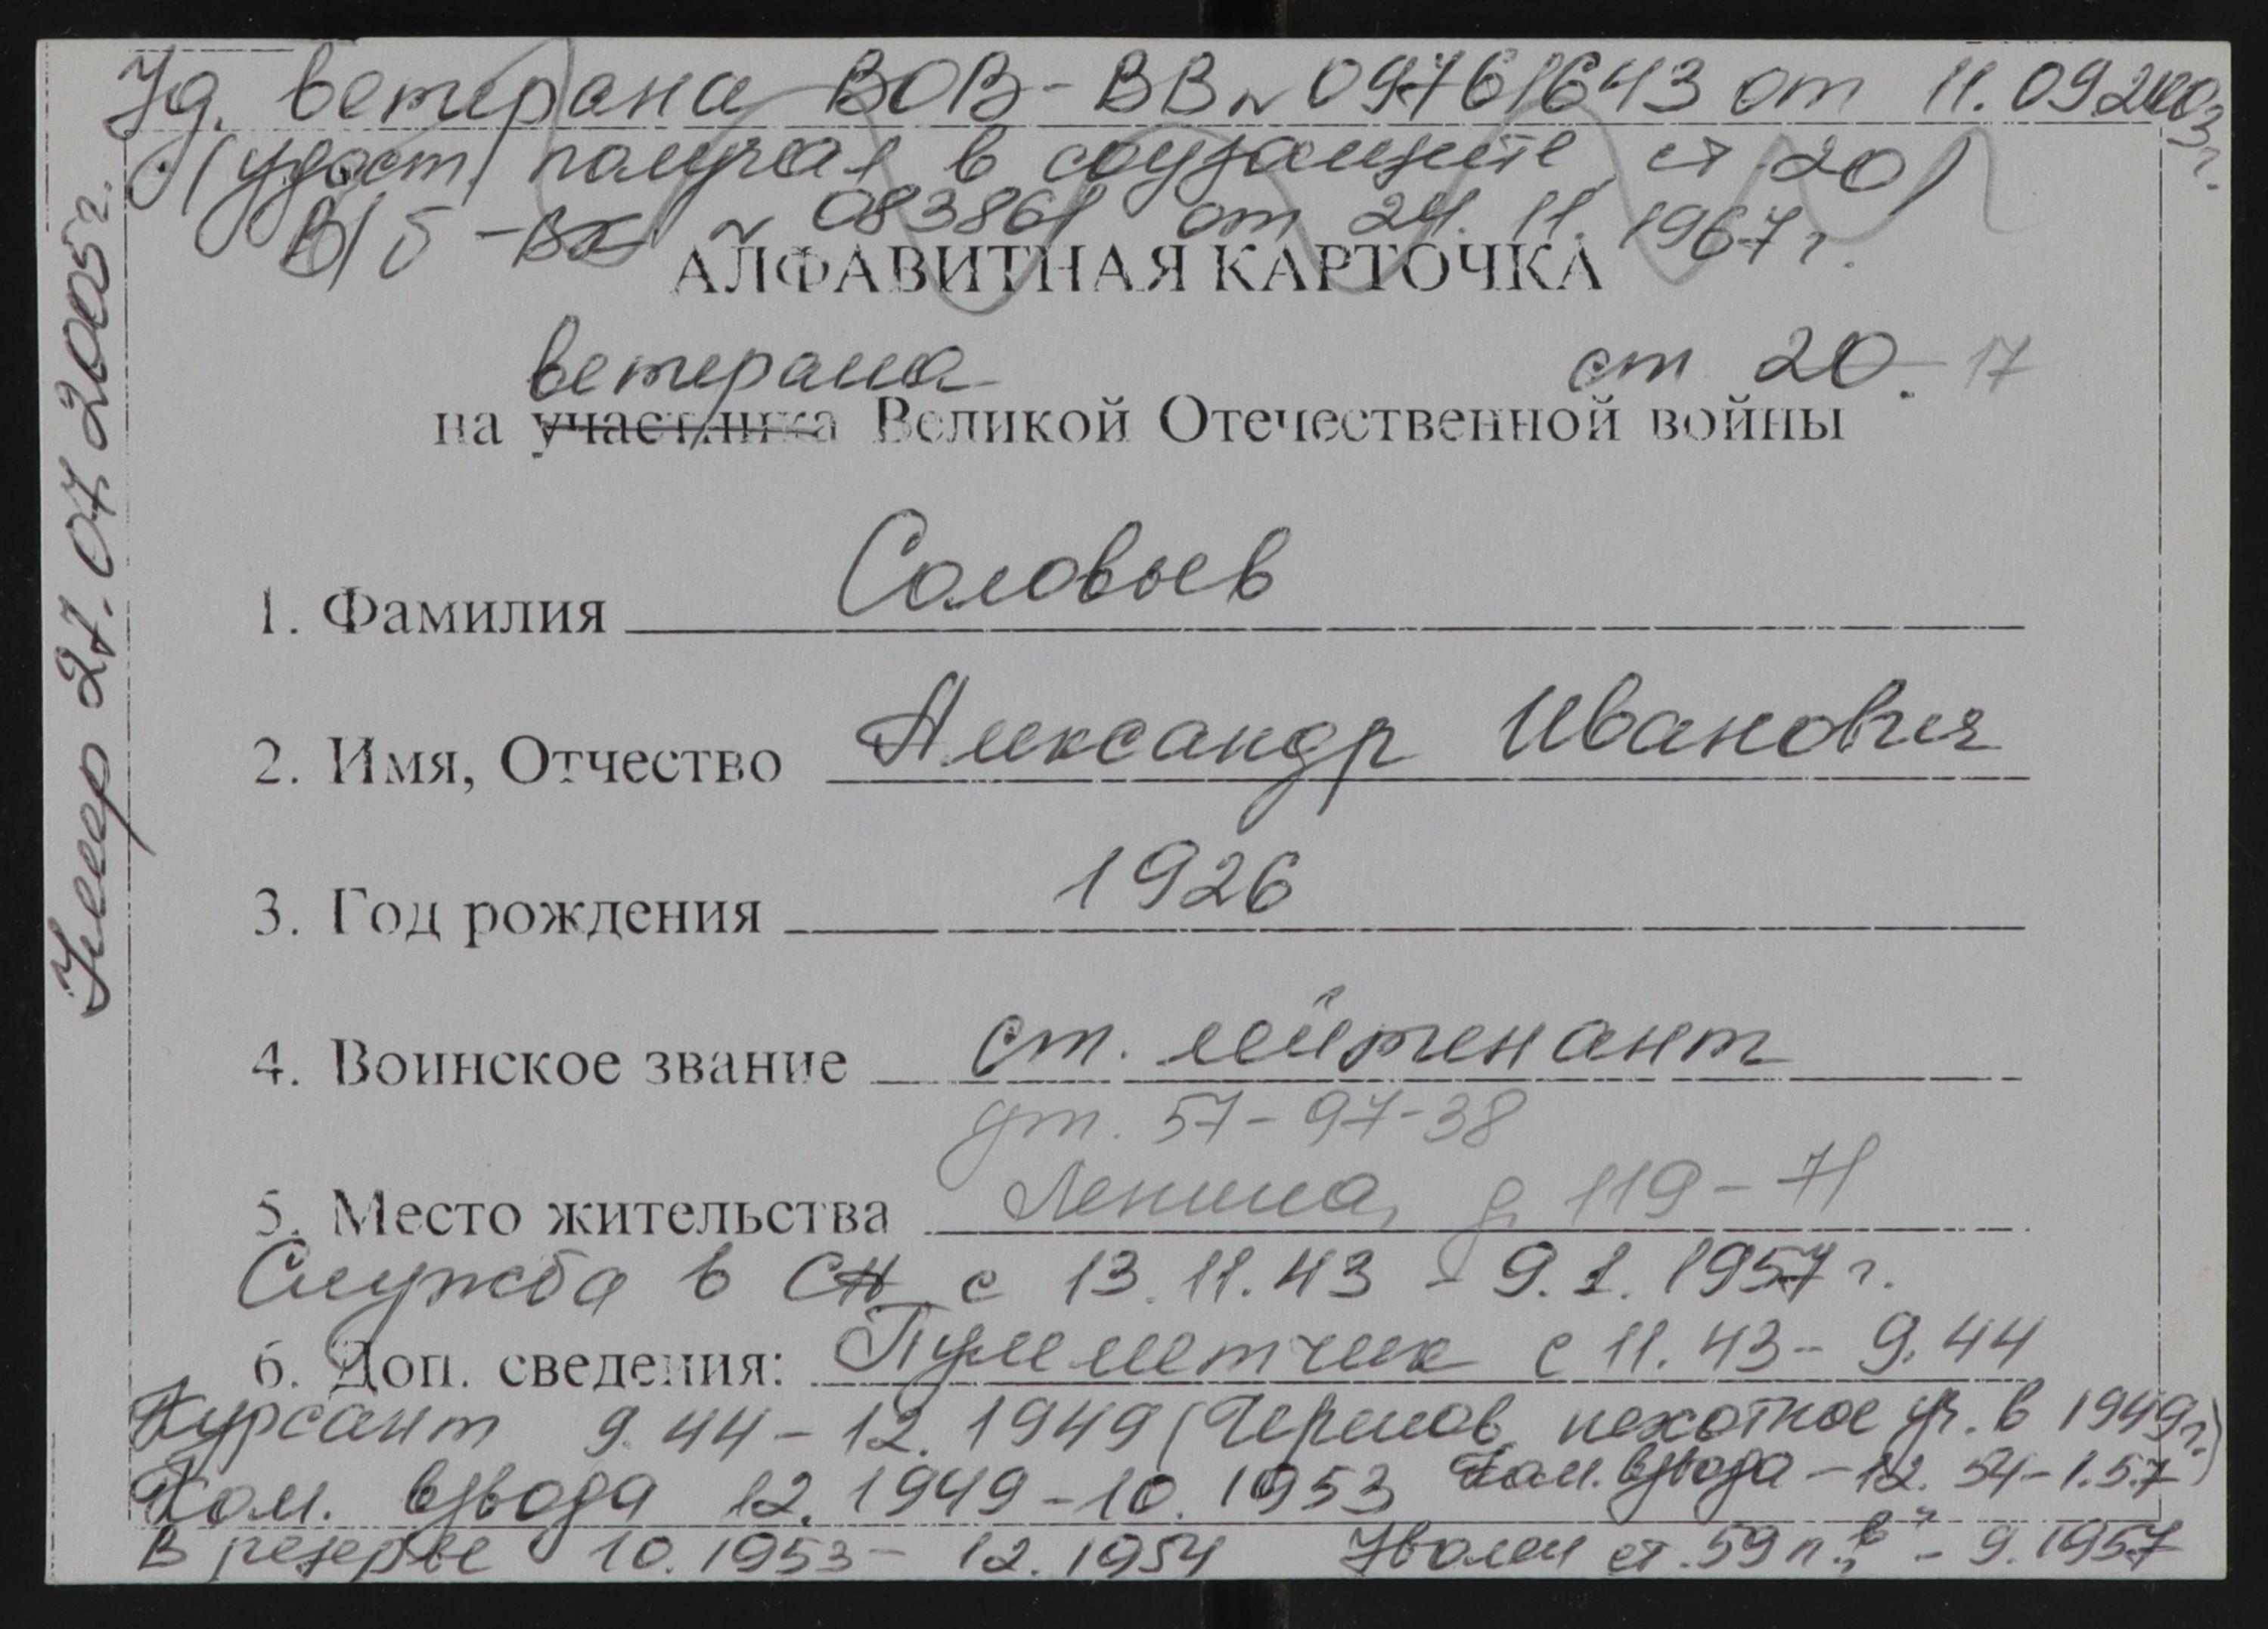 Уд. ветерана ВОВ - ВВ № 09761643 от 11.09.2003 г.
(удост. получал в соузащите, ст 20)
В/б - № 083861 от 24. 11. 1967 г.
АЛФАВИТНАЯ КАРТОЧКА
ветерана ст 20. 17
на участника Великой Отечественной войны
1. Фамилия Соловьев
2. Имя, Отчество Александр Иванович
3. Год рождения 1926
4. Воинское звание ст. лейтенант
дт. 57-97-38
5. Место жительства Ленина, д. 119 - 71
Служба в с 13.11.43 - 9.1.1957 г.
6. Доп. сведения: Пулеметчик с 11.43 - 9.44
Курсант 9.44 - 12.1949 ( пехотное уч. в 1949 г.)
Ком. взвода 12.1949 - 10.1953 Ком. взвода - 12.54 - 1.57
В резерве 10.1953 - 12.1954 Уволен ст. 59 п. "в" - 9.1957
Умер 27.07.2005 г.